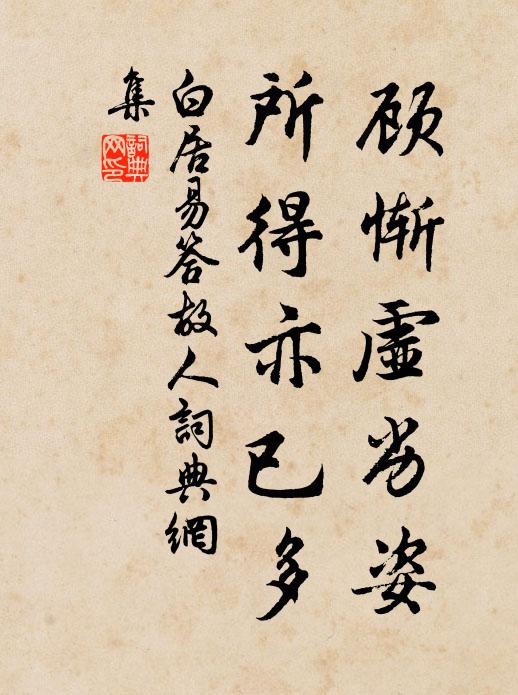 顾惭虛劣姿
所得亦已多
白居易答故人詞典網
集
詞典
网印